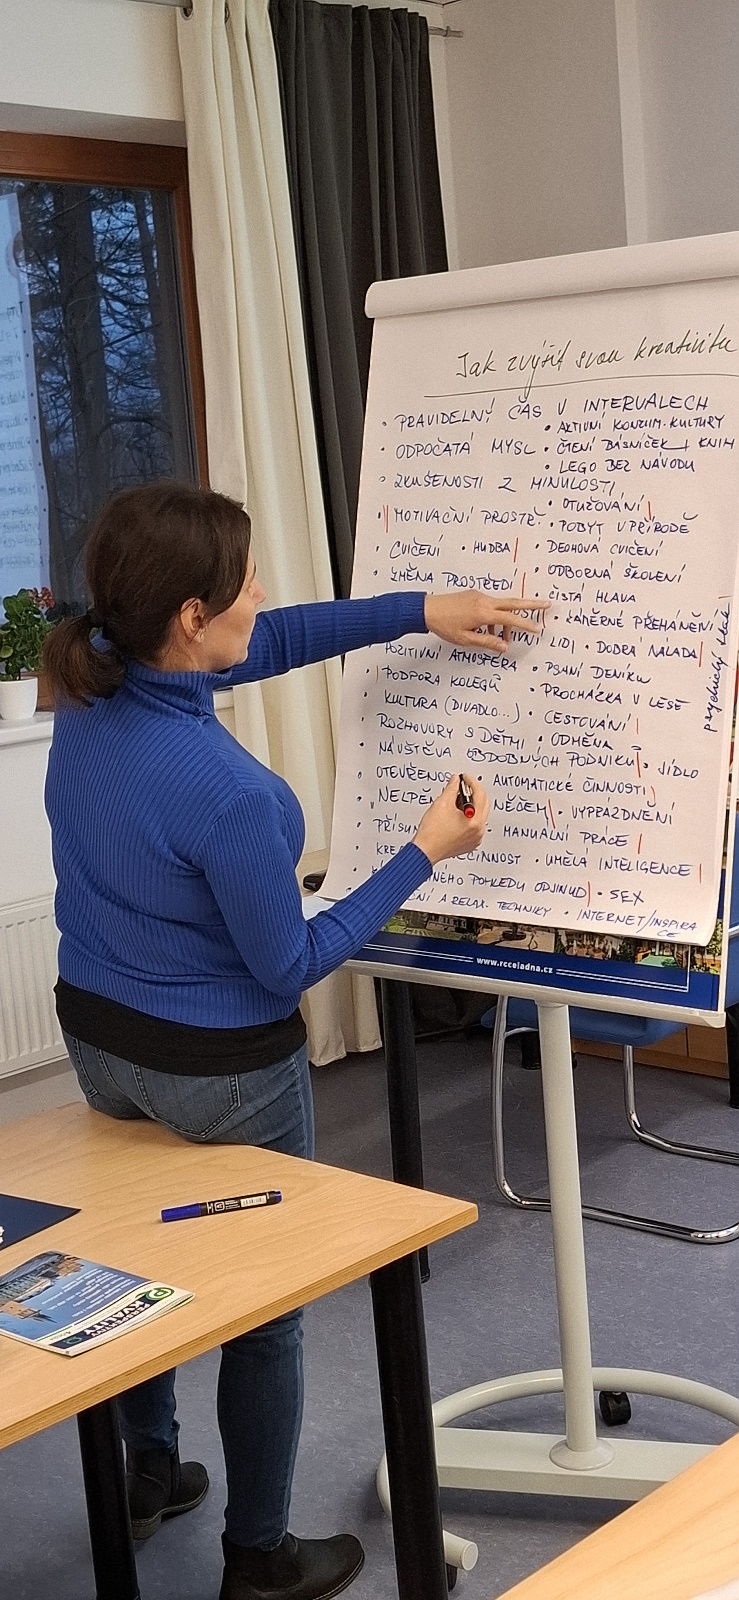 Jak zvýšit svou kreativitu
• PRAVIDELNÝ ČAS V INTERVALECH
• AKTIVNÍ KONZUM. KULTURY
• ODPOČATÁ MYSL
• ČTENÍ BÁSNIČEK + KNIH
• LEGO BEZ NÁVODU
• ZKUŠENOSTI Z MINULOSTI
• OTUŽOVÁNÍ
• MOTIVAČNÍ PROSTŘ.
• POBYT V PŘÍRODĚ
• CVIČENÍ • HUDBA
• DECHOVÁ CVIČENÍ
• ZMĚNA PROSTŘEDÍ
• ODBORNÁ ŠKOLENÍ
• ČISTÁ HLAVA
• ZÁMĚRNÉ PŘEHÁNĚNÍ
LIDI • DOBRÁ NÁLADA
POZITIVNÍ ATMOSFÉRA
• PSANÍ DENÍKU
• PODPORA KOLEGŮ
• PROCHÁZKA V LESE
• KULTURA (DIVADLO...)
• CESTOVÁNÍ
• ROZHOVORY S DĚTMI • ODMĚNA
• NÁVŠTĚVA OBDOBNÝCH PODNIKŮ • JÍDLO
• AUTOMATICKÉ ČINNOSTI
NĚČEM • VYPRÁZDNĚNÍ
• MANUÁLNÍ PRÁCE
• UMĚLÁ INTELIGENCE
POHLEDU ODJINUD • SEX
A RELAX. TECHNIKY • INTERNET/INSPIRACE
psychický
www.rcceladna.cz
KVALITY